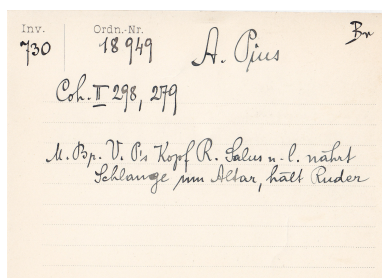 Inv. Ordn.-Nr. Br
730 18949 A. Pius
Coh. II 298, 279
M. Bp. V. P's Kopf R. Salus n. l. nährt
Schlange um Altar, hält Ruder